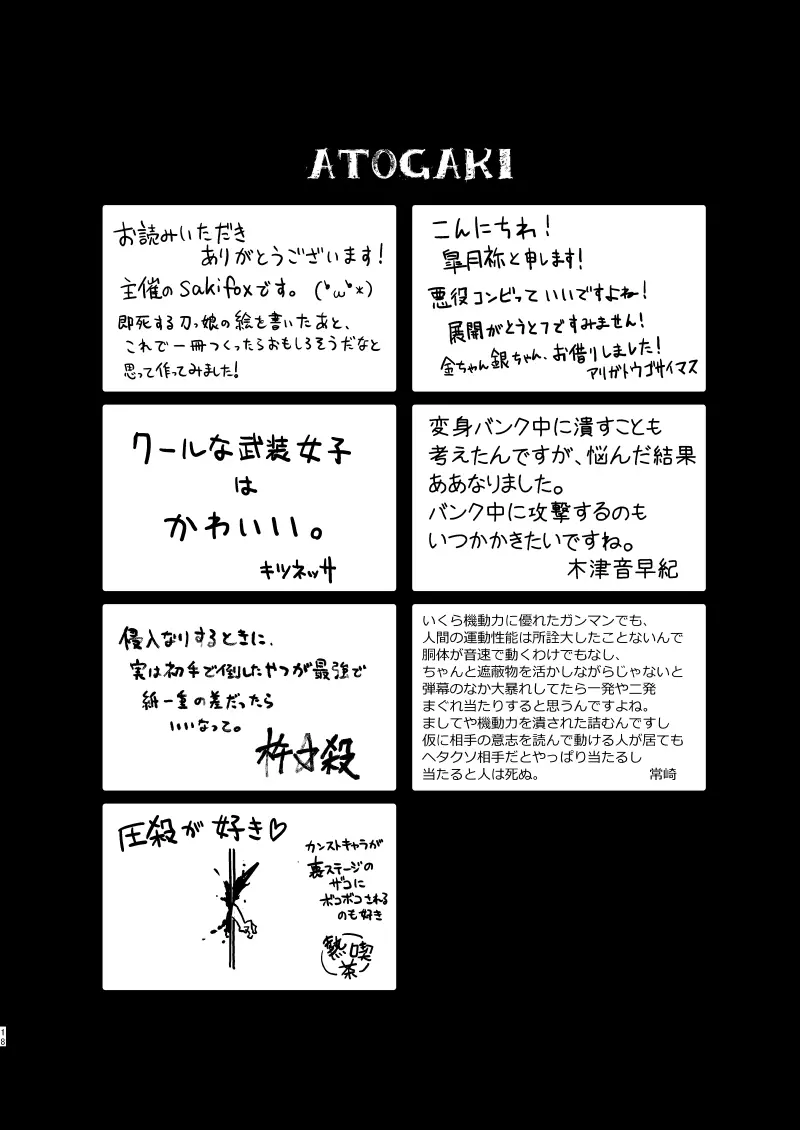 ATOGAKI
お読みいただき
ありがとうございます!
主催のsakifoxです。(•ω•*)
即死する刀っ娘の絵を書いたあと、
これで一冊つくったらおもしろそうだなと
思って作ってみました!
こんにちわ!
皐月祢と申します!
悪役コンビっていいですよね!
展開がとうとつですみません!
金ちゃん銀ちゃん、お借りしました!
アリガトウゴサイマス
クールな武装女子
は
かわいい。
キツネッサ
変身バンク中に潰すことも
考えたんですが、悩んだ結果
ああなりました。
バンク中に攻撃するのも
いつかかきたいですね。
木津音早紀
侵入なりするときに、
実は初手で倒したやつが最強で
紙一重の差だったら
いいなって。
杵☆殺
いくら機動力に優れたガンマンでも、
人間の運動性能は所詮大したことないんで
胴体が音速で動くわけでもなし、
ちゃんと遮蔽物を活かしながらじゃないと
弾幕のなか大暴れしてたら一発や二発
まぐれ当たりすると思うんですよね。
ましてや機動力を潰された詰むんですし
仮に相手の意志を読んで動ける人が居ても
ヘタクソ相手だとやっぱり当たるし
当たると人は死ぬ。 常崎
圧殺が好き♡
カンストキャラが
裏ステージの
ザコに
ボコボコされる
のも好き
熱喫茶
18